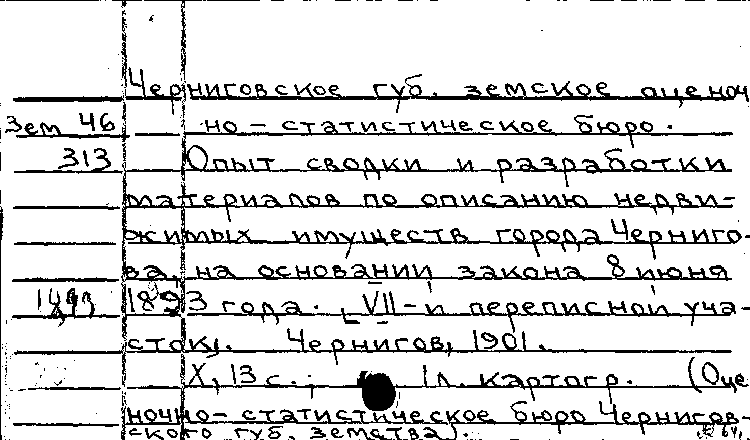 Черниговское губ. земское оценоч
Зем 46 но-статистическое бюро.
313 Опыт сводки и разработки
материалов по описанию недви-
жимых имуществ города Черниго-
ва, на основании закона 8 июня
1893 года. VII-й переписной уча-
сток. Чернигов, 1901.
X, 13 с.; 1 л. картогр. (Оце
ночно-статистическое бюро Чернигов-
ского губ. земства).